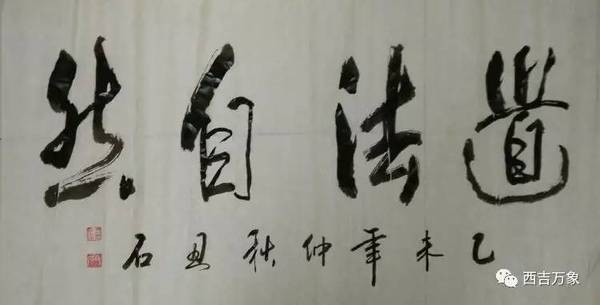 道法自然
乙未年仲秋丑石
西吉万象